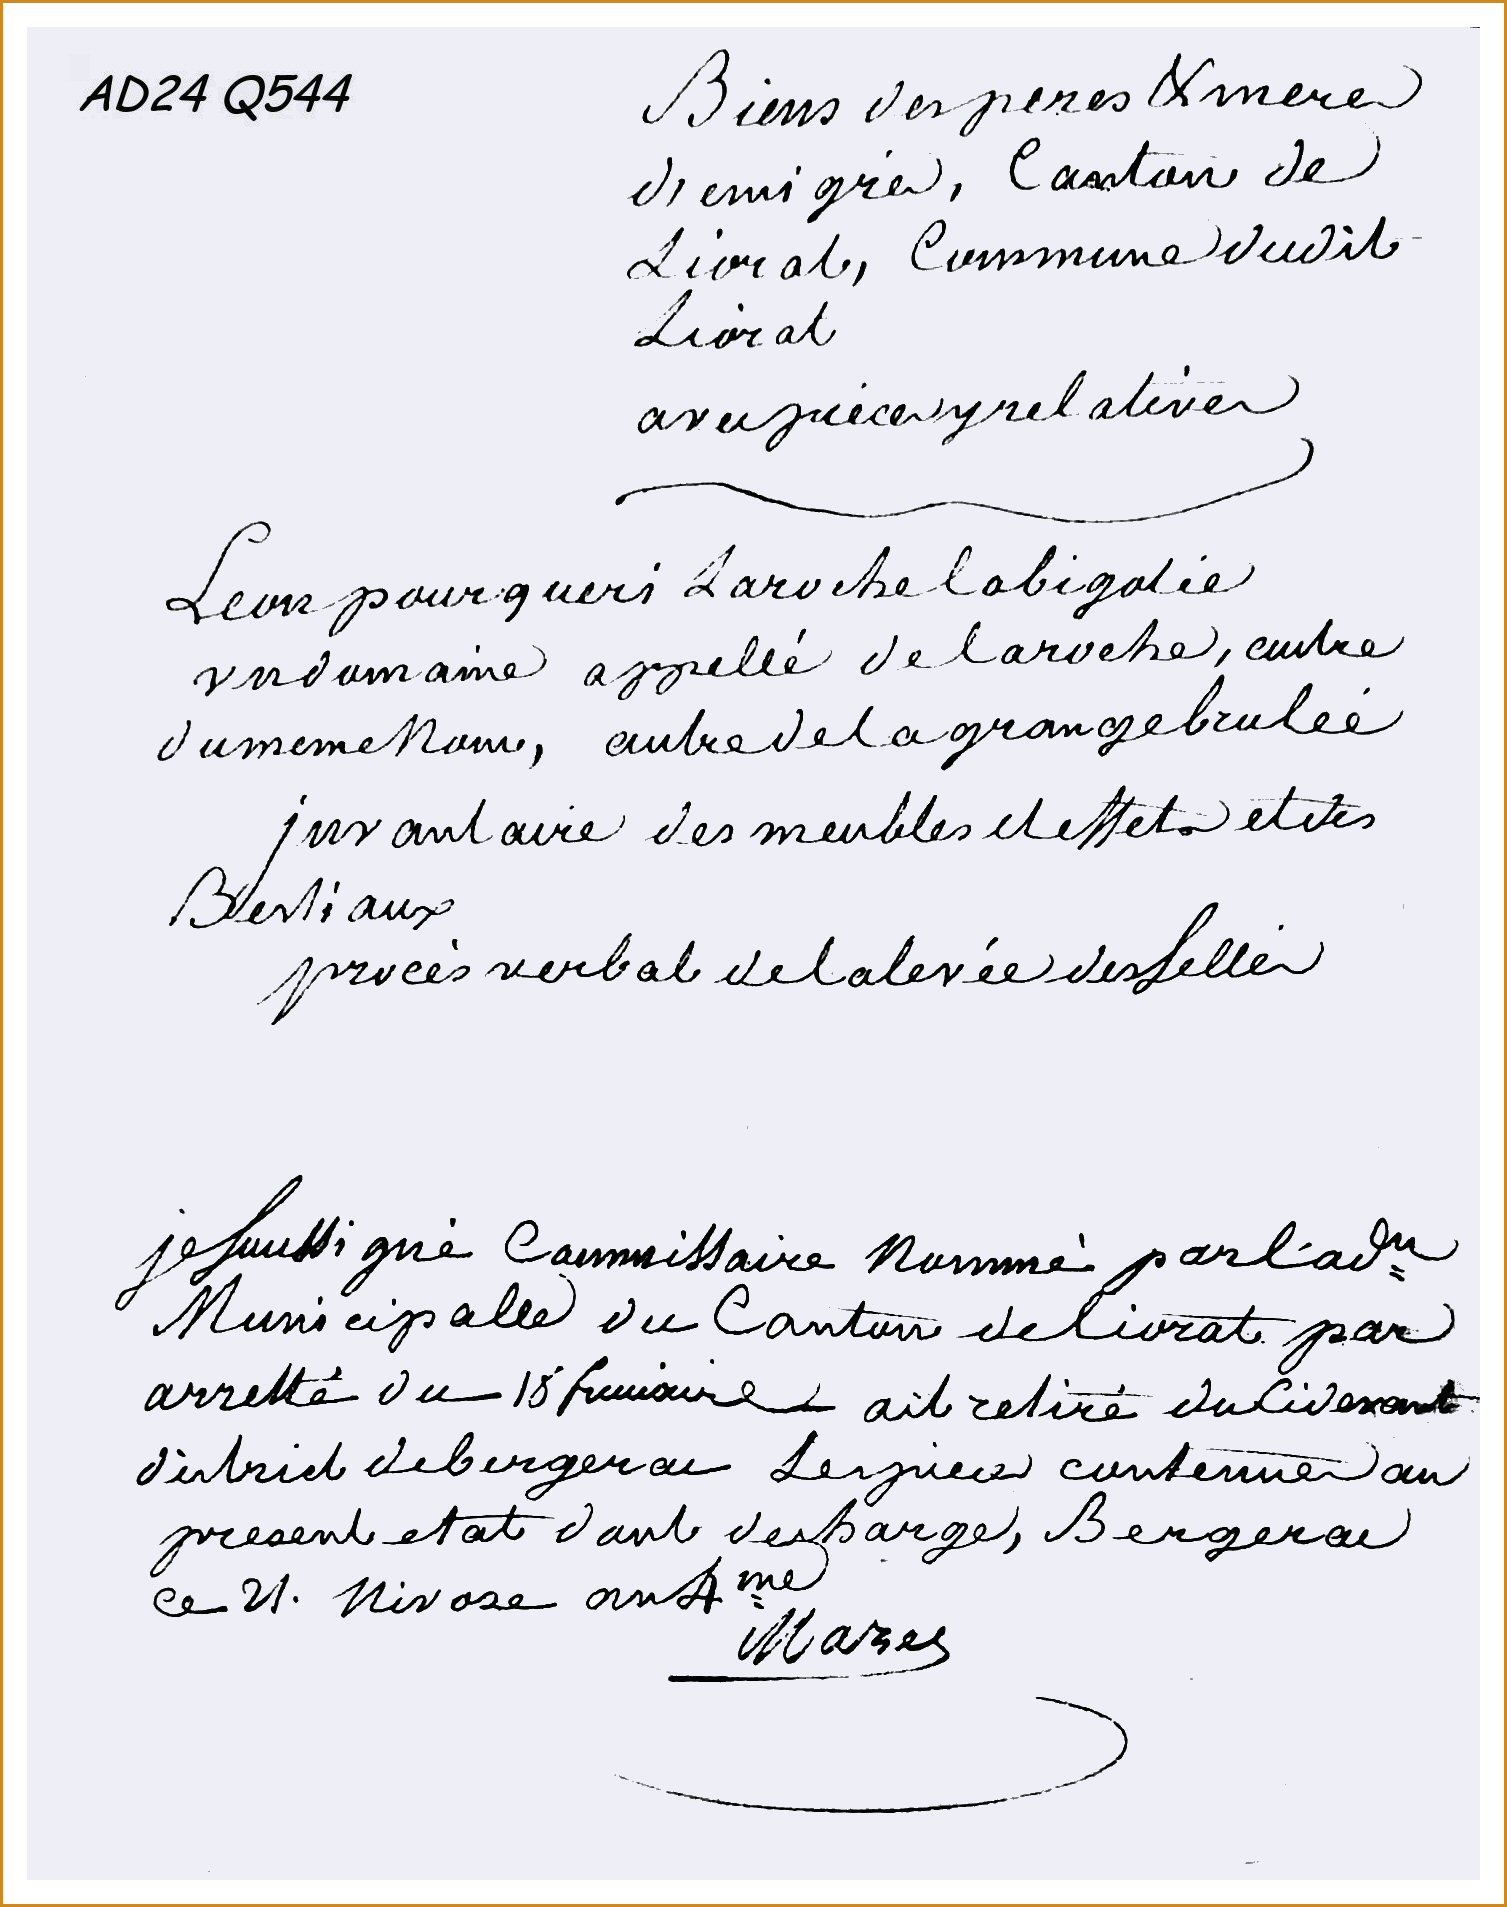 AD24 Q544
Biens des peres & meres
d'emigrés, Canton de
Liorat, Commune dudit
Liorat
avec pieces y relatives
Leon pourqueri Laroche labigotie
un domaine appellé de Laroche, autre
du meme Nom, autre de la grange brulée
invantaire des meubles et effets et des
Bestiaux
procès verbal de la levée des sellés
je soussigné Commissaire Nommé par l'adon
Municipalle du Canton de liorat par
arretté du 18 frimaire ait retiré du Cidevant
district de bergerac Les pieces contenues au
present etat dont descharge, Bergerac
ce 21. Nivose an 4me
Mares